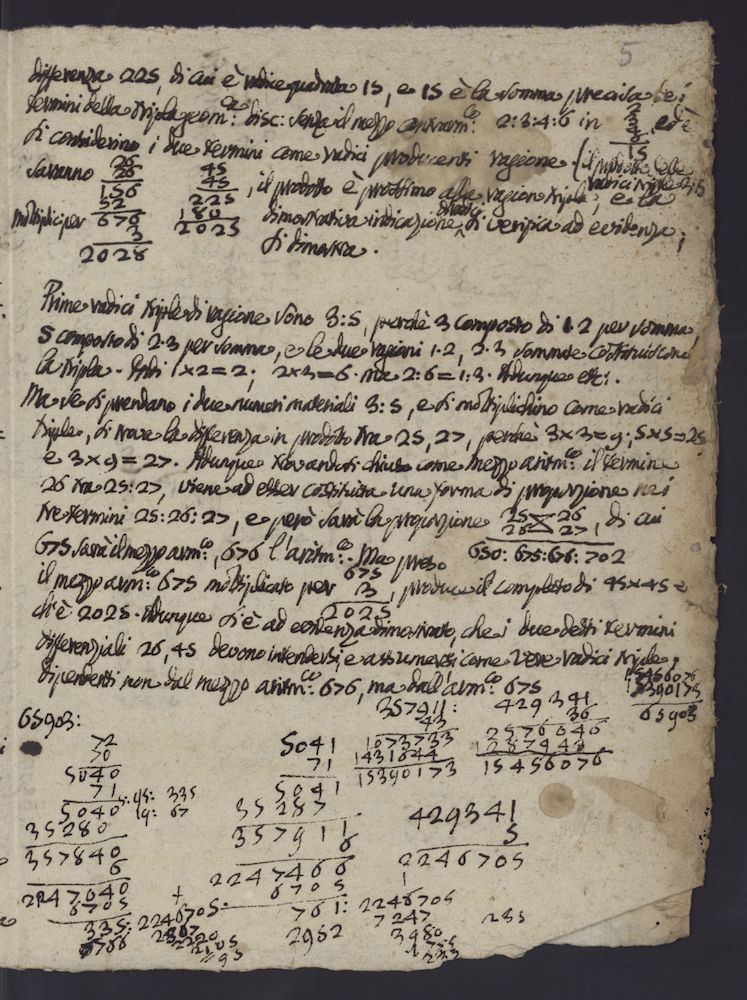 5
differenza 225, di cui è radice quadrata 15, e 15 è la somma precisa de i
termini della tripla geom.ca disc: senza il mezzo contrarm.co 2:3:4:6 in 2 3 4 6 15, ed è
si considerino i due termini come radici producenti ragione (il prodotto delle
radici triple 3:5
saranno 26 26 156 52 676 45 45 225 180 2025, il prodotto è prossimo alla ragion tripla, e la
moltiplic: per 3 2028 dimostrativa indicazione si verifica ad evidenza;
si dimostra.
Prime radici triple di ragione sono 3:5, perchè 3 composto di 1 2 per somma,
5 composto di 2·3 per somma, e le due ragioni 1·2, 2·3 sommate costituiscono
la tripla. Indi 1×2=2; 2×3=6. ma 2:6=1:3. Adunque etc:.
Ma se si prendano i due numeri materiali 3:5, e si moltiplichino come radici
triple, si trova la differenza in prodotto tra 25, 27, perchè 3×3=9; 5×5=25
e 3×9=27. Adunque tra andati chiuso come mezzo aritm.co il termine
26 tra 25:27, viene ad esser costituita una forma di proporzione ne i
tre termini 25:26:27, e però sarà la proporzione 25 26 26 27, di cui
650:675:676:702
675 sarà il mezzo arm.co, 676 l'aritm.co. Ma preso
il mezzo arm.co 675 moltiplicato per 675 3 2025, produce il complesso di 45×45 =
ch'è 2025. Adunque si è ad evidenza dimostrato, che i due detti termini
differenziali 26, 45 devono intendersi, e assumersi come vere radici triple,
dipendenti non dal mezzo aritm.co 676, ma dall'arm.co 675
15456076
15390173
65903
65903:
72
70
5040
71
5040
35280
357840
6
2147040
6705
335:
5041
71
5041
35287
357911
6
2147466
6705
761:
2982
357911:
43
1073733
1431644
15390173
429341
36
2576046
1288023
15456076
429341
5
2146705
2246705
7247
3980
235